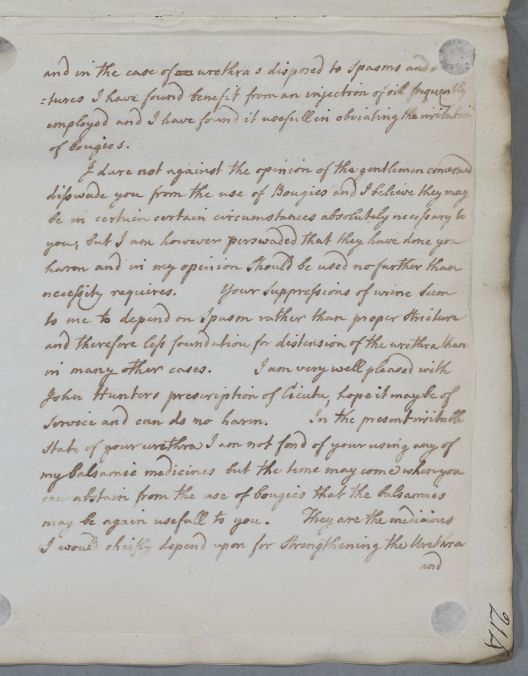 and in the case of urethras disposed to Spasms and
:tures I have found benefit from an injection of oil frequently
employed and I have found it usefull in obviating the irritation
of bougies.
I dare not against the opinion of the gentlemen concerned
disswade you from the use of Bougies and I believe they may
be in certain certain circumstances absolutely necessary to
you, but I am however perswaded that they have done you
harm and in my opinion should be used no further than
necessity requires. Your suppressions of urine seem
to me to depend on Spasm rather than proper Stricture
and therefore less foundation for distension of the urethra than
in many other cases. I am very well pleased with
John Hunters prescription of Cicuta, hope it may be of
Service and can do no harm. In the present irritable
State of your urethra I am not fond of your using any of
my balsamic medicines but the time may come when you
can abstain from the use of bougies that the balsamics
may be again usefull to you. They are the medicines
I would chiefly depend upon for strengthening the Urethra
and
214